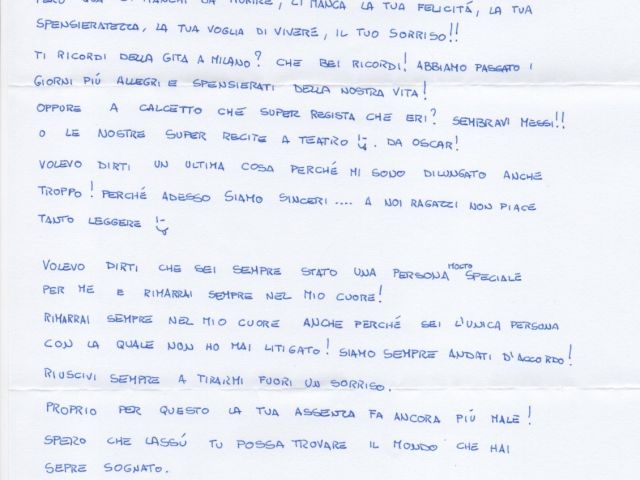 PERÒ QUA CI MANCHI DA MORIRE, CI MANCA LA TUA FELICITÁ, LA TUA
SPENSIERATEZZA, LA TUA VOGLIA DI VIVERE, IL TUO SORRISO!!
TI RICORDI DELLA GITA A MILANO? CHE BEI RICORDI! ABBIAMO PASSATO I
GIORNI PIÚ ALLEGRI E SPENSIERATI DELLA NOSTRA VITA!
OPPURE A CALCETTO CHE SUPER REGISTA CHE ERI? SEMBRAVI MESSI!!
O LE NOSTRE SUPER RECITE A TEATRO. DA OSCAR!
VOLEVO DIRTI UN ULTIMA COSA PERCHÉ MI SONO DILUNGATO ANCHE
TROPPO! PERCHÉ ADESSO SIAMO SINCERI.... A NOI RAGAZZI NON PIACE
TANTO LEGGERE
VOLEVO DIRTI CHE SEI SEMPRE STATO UNA PERSONA MOLTO SPECIALE
PER ME E RIMARRAI SEMPRE NEL MIO CUORE!
RIMARRAI SEMPRE NEL MIO CUORE ANCHE PERCHÉ SEI L'UNICA PERSONA
CON LA QUALE NON HO MAI LITIGATO! SIAMO SEMPRE ANDATI D'ACCORDO!
RIUSCIVI SEMPRE A TIRARMI FUORI UN SORRISO.
PROPRIO PER QUESTO LA TUA ASSENZA FA ANCORA PIÚ MALE!
SPERO CHE LASSÚ TU POSSA TROVARE IL MONDO CHE HAI
SEPRE SOGNATO.